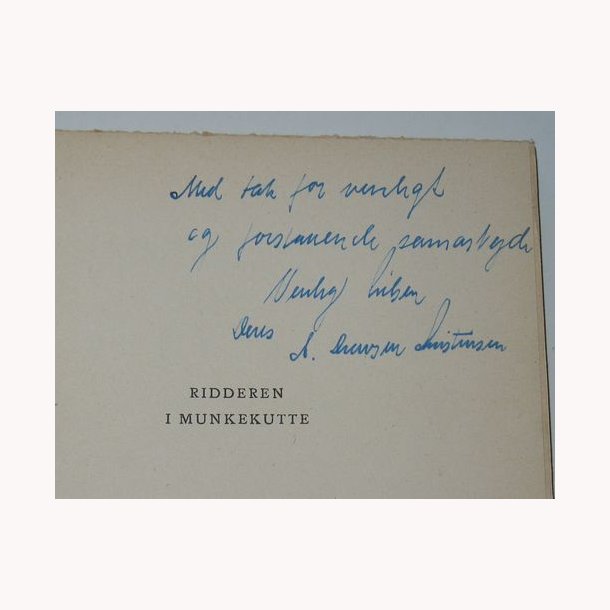 Med tak for venligt
og forstaaende samarbejde
Venlig hilsen
Deres
A. Drewsen Christensen
RIDDEREN
I MUNKEKUTTE